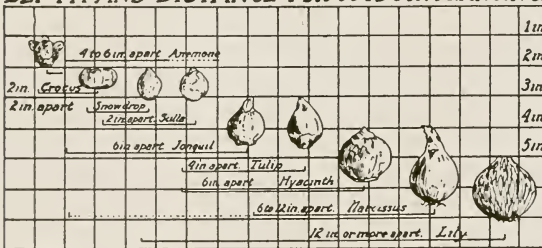 1in
4 to 6in. apart Anemone
2in
2in. Crocus
3in
2in. apart Snowdrop
2in. apart. Scilla
4in
6in apart Jonquil
5in
4in apart. Tulip
6in. apart Hyacinth
6 to 12in. apart. Narcissus
12 in or more apart. Lily